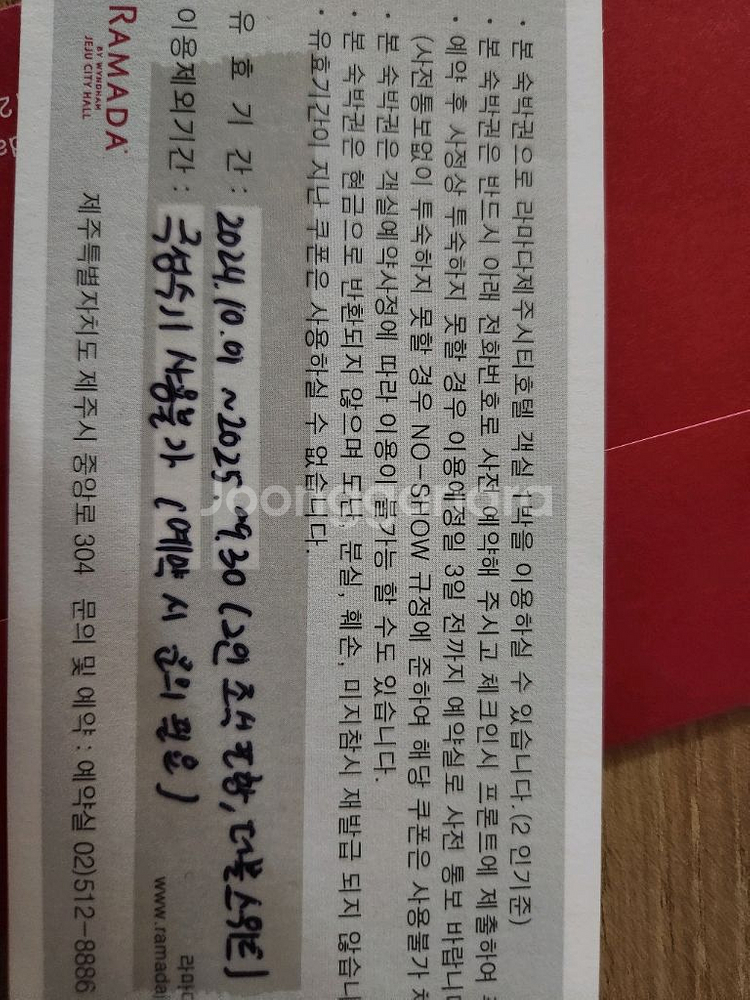 · 본 숙박권으로 라마다제주시티호텔 객실 1박을 이용하실 수 있습니다.(2 인기준)
· 본 숙박권은 반드시 아래 전화번호로 사전 예약해 주시고 체크인시 프론트에 제출하여
· 예약 후 사정상 투숙하지 못할 경우 이용예정일 3일 전까지 예약실로 사전 통보 바랍니다
(사전통보없이 투숙하지 못할 경우 NO-SHOW 규정에 준하여 해당 쿠폰은 사용불가
· 본 숙박권은 객실예약사정에 따라 이용이 불가능 할 수도 있습니다.
· 본 숙박권은 현금으로 반환되지 않으며 도난, 분실, 훼손, 미지참시 재발급 되지 않습니
· 유효기간이 지난 쿠폰은 사용하실 수 없습니다.
유 효 기 간 : 2024.10.01 ~2025.09.30 (2인 조식포함, 더블스위트)
이용제외기간 : 극성수기 사용불가 (예약 시 문의 필요)
라마다
www.ramadaj
RAMADA
BY WYNDHAM
JEJU CITY HALL
제주특별자치도 제주시 중앙로 304 문의 및 예약 : 예약실 02)512-8886
Joonggonara